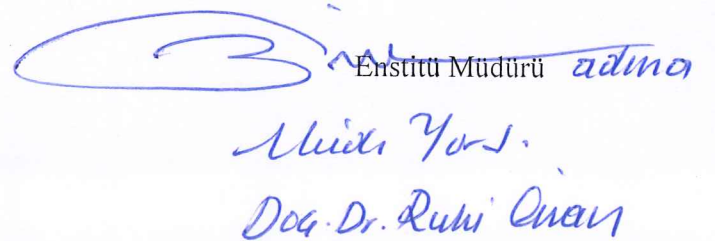 Enstitü Müdürü adına
Müdür Yard.
Doç. Dr. Ruhi İnan